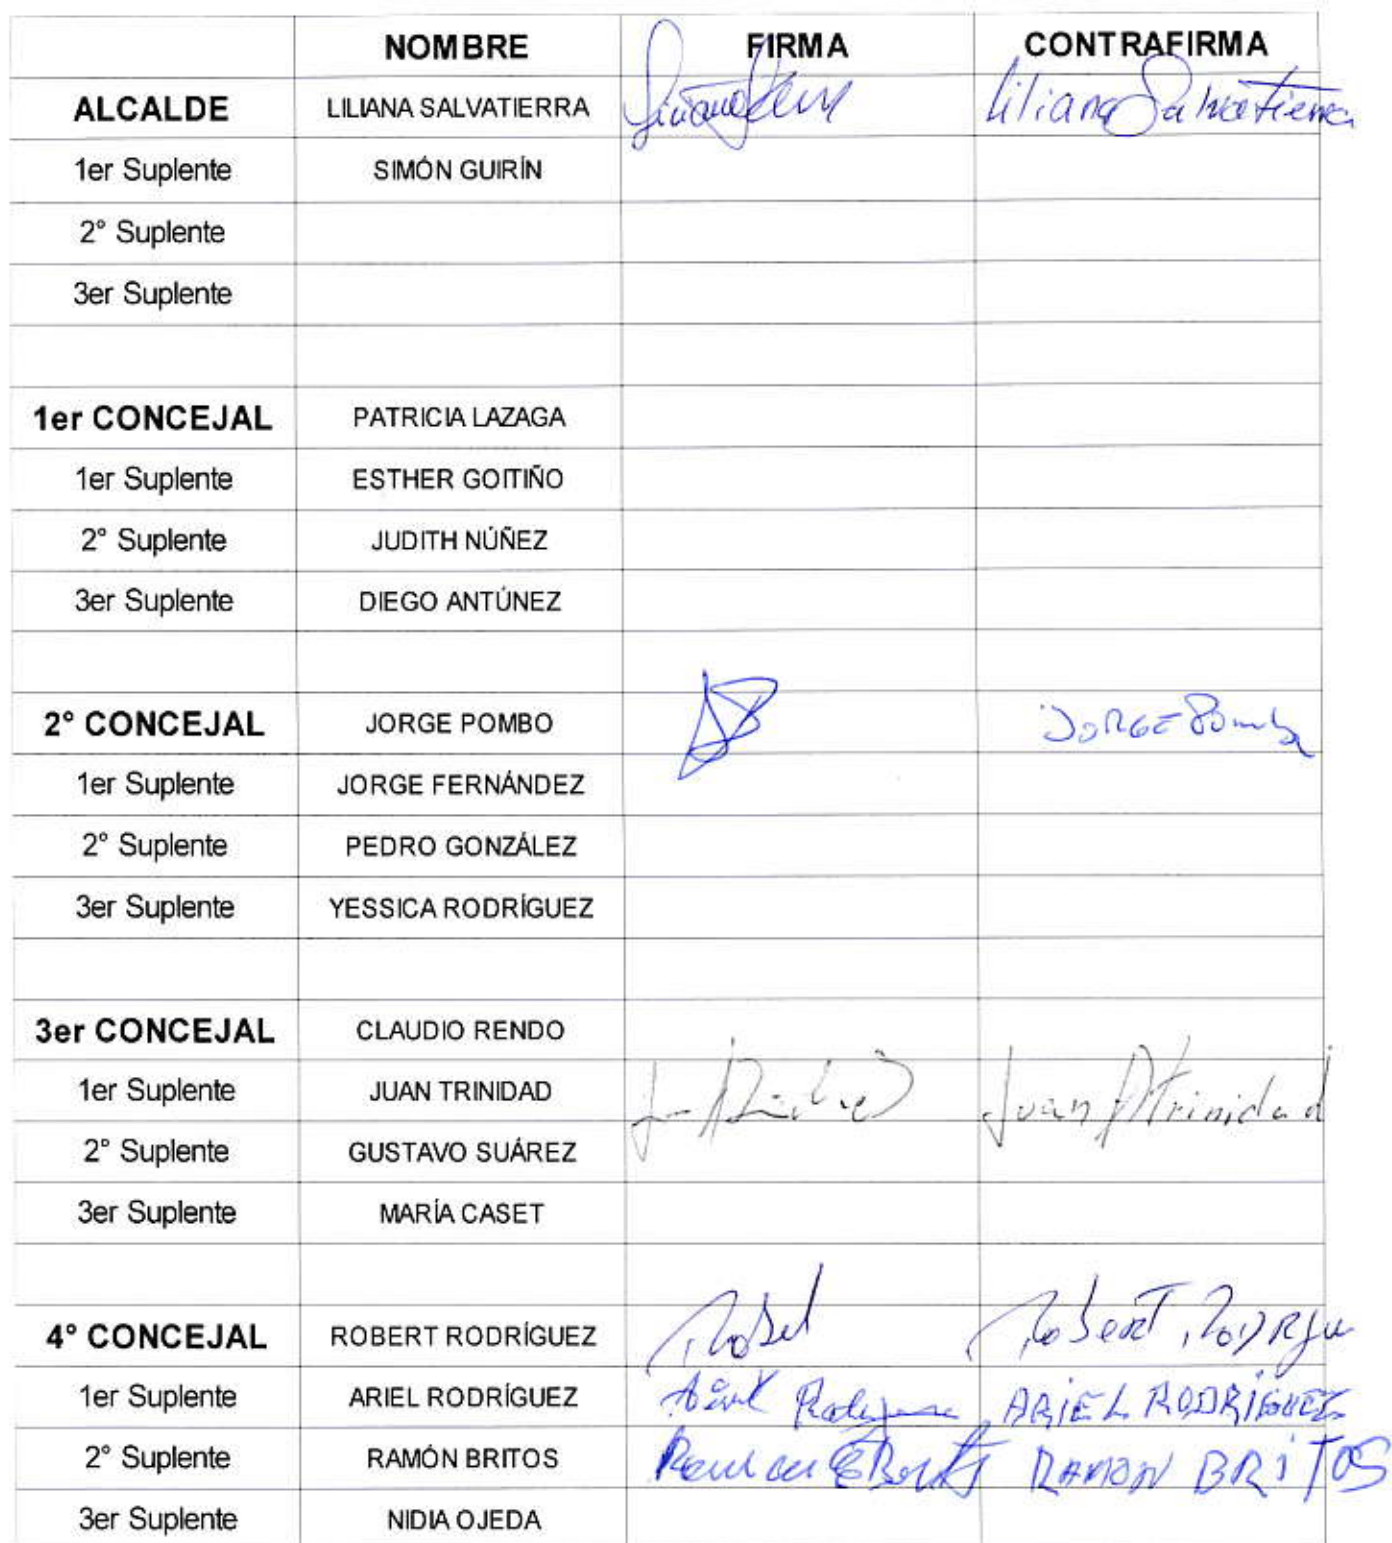 NOMBRE FIRMA CONTRAFIRMA
ALCALDE LILIANA SALVATIERRA Liliana Salvatierra
1er Suplente SIMÓN GUIRÍN
2° Suplente
3er Suplente
1er CONCEJAL PATRICIA LAZAGA
1er Suplente ESTHER GOITIÑO
2° Suplente JUDITH NÚÑEZ
3er Suplente DIEGO ANTÚNEZ
2° CONCEJAL JORGE POMBO JORGE Pombo
1er Suplente JORGE FERNÁNDEZ
2° Suplente PEDRO GONZÁLEZ
3er Suplente YESSICA RODRÍGUEZ
3er CONCEJAL CLAUDIO RENDO
1er Suplente JUAN TRINIDAD Juan A Trinidad
2° Suplente GUSTAVO SUÁREZ
3er Suplente MARÍA CASET
4° CONCEJAL ROBERT RODRÍGUEZ Robert
1er Suplente ARIEL RODRÍGUEZ ARIEL RODRÍGUEZ
2° Suplente RAMÓN BRITOS RAMON BRITOS
3er Suplente NIDIA OJEDA